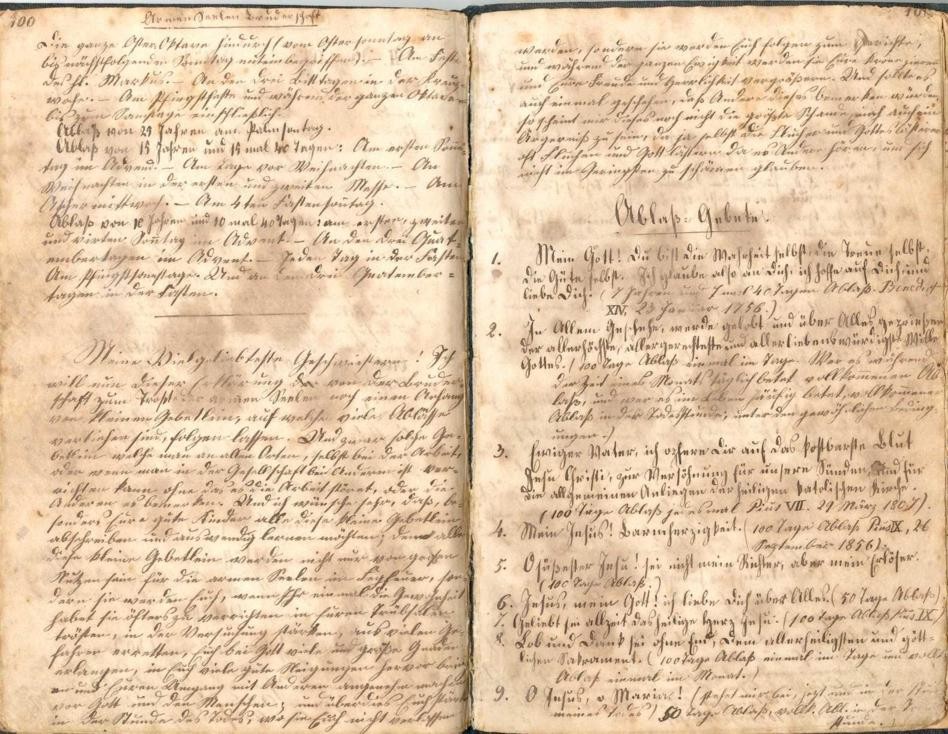 100
Armen Seelen Bruderschaft
Die ganze Oster Oktave hindurch (vom Ostersonntag an
bis nächstfolgenden Sonntag miteinbegriffen). — Am Feste
des hl. Markus — An den drei Bittagen in der Kreuz
woche. — Am Pfingstfeste und während der ganzen Oktave
bis zum Samstage einschließlich.
Ablaß von 25 Jahren am Palmsontag.
Ablaß von 15 Jahren und 15 mal 40 Tagen: Am ersten Sonn
tag im Advent. — Am Tage vor Weihnachten. — An
Weihnachten in der ersten und zweiten Messe. — Am
Aschermittwoch. — Am 4ten Fastensonntag.
Ablaß von 10 Jahren und 10 mal 40 Tagen: am ersten, zweiten
und vierten Sontag im Advent. — An den drei Quat=
embertagen im Advent. — Jeden Tag in der Fasten
Am Pfingstsonstage. Und an den drei Quatember=
tagen in der Fasten.
Meine Vielgeliebteste Geschwistern! Ich
will nun dieser Erklärung von der Bruder
schaft zum Troste der armen Seelen noch einen Anhang
von kleinen Gebetlein, auf welche viele Abläße
verliehen sind, folgen lassen. Und zwar solche Ge-
betlein welche man an allen Orten, selbst bei der Arbeit,
oder wenn man in der Gesellschaft bei Anderen ist ver-
richten kann ohne daß es die Arbeit störet, oder die
Anderen es bemerken. Und ich wünsche sehr, daß be-
sonders Eure gute Kinder alle diese kleine Gebetlein
abschreiben und auswendig lernen möchten; denn alle
diese kleine Gebetlein werden nicht nur von großen
Nutzen sein für die armen Seelen im Fegfeuer, son
dern sie werden Euch, wenn Ihr einmal die Gewohnheit
habet sie öfters zu verrichten in Euren Trübsalen
trösten, in der Versuchung stärken, aus vielen Ge-
fahren erretten, Euch bei Gott viele und große Gnaden
erlangen, in Euch viele gute Neigungen hervor brin
en und Euren Umgang mit Anderen angenehm machen
vor Gott und den Menschen; und überdies Euch stärken
in der Stunde des Todes, wo sie Euch nicht verlassen
101
werden, sondern sie werden Euch folgen zum Gerichte,
und während der ganzen Ewigkeit werden sie Eure Krone zieren
und Eure Freude und Herrlichkeit vergrößern. Und sollte es
auch einmal geschehen, daß Andere dieses bemerken würden
so scheint mir dieses noch nicht die größte Schame noch auch ein
Ärgerniß zu sein, da ja selbst die Flucher und Gotteslästerer
oft Fluchen und Gott lästern da es Andere hören, um sich
nicht im Geringsten zu schämen glauben.
Ablaß=Gebete.
1. Mein Gott! Du bist die Wahrheit selbst, die Treue selbst,
die Güte selbst. Ich glaube also an Dich, ich hoffe auf Dich und
liebe Dich. (7 Jahren und 7 mal 40 Tagen Ablaß. Benedict
XIV, 23 Januar 1756.)
2. In Allem Geschehe, werde gelobt und über Alles gepriesen
der allerhöchste, aller gerechteste und aller liebenswürdigste Wille
Gottes. (100 Tage Ablaß einmal im Tage. Wer es während
der Zeit eines Monats täglich betet vollkommenen Ab
laß, und wer es im Leben häufig betet, vollkommenen
Ablaß in der Todesstunde, unter den gewöhnlichen Beding
ungen.)
3. Ewiger Vater, ich opfere Dir auf das kostbarste Blut
Jesu Christi, zur Versöhnung für unsere Sünden, und für
die allgemeinen Anliegen der heiligen katolischen Kirche.
(100 Tage Ablaß jedesmal Pius VII. 29 März 1807).
4. Mein Jesus! Barmherzigkeit. (100 Tage Ablaß Pius IX, 26
September 1856).
5. O süßester Jesu! sei nicht mein Richter, aber mein Erlöser.
(100 Tage Ablaß.)
6. Jesus, mein Gott! ich liebe Dich über Alles. (50 Tage Ablaß)
7. Geliebt sei allzeit das heilige Herz Jesu. (100 Tage Ablaß Pius IX)
8. Lob und Dank sei ohne End, Dem allerheiligsten und gött-
lichen Sakrament. (100 Tage Ablaß einmal im Tage und vollk.
Ablaß einmal im Monat.)
9. O Jesus, o Maria! (stehet mir bei, jetzt und in der Stunde
meines Todes) 50 Tage Ablaß, vollk. Abl. in der To
stunde.